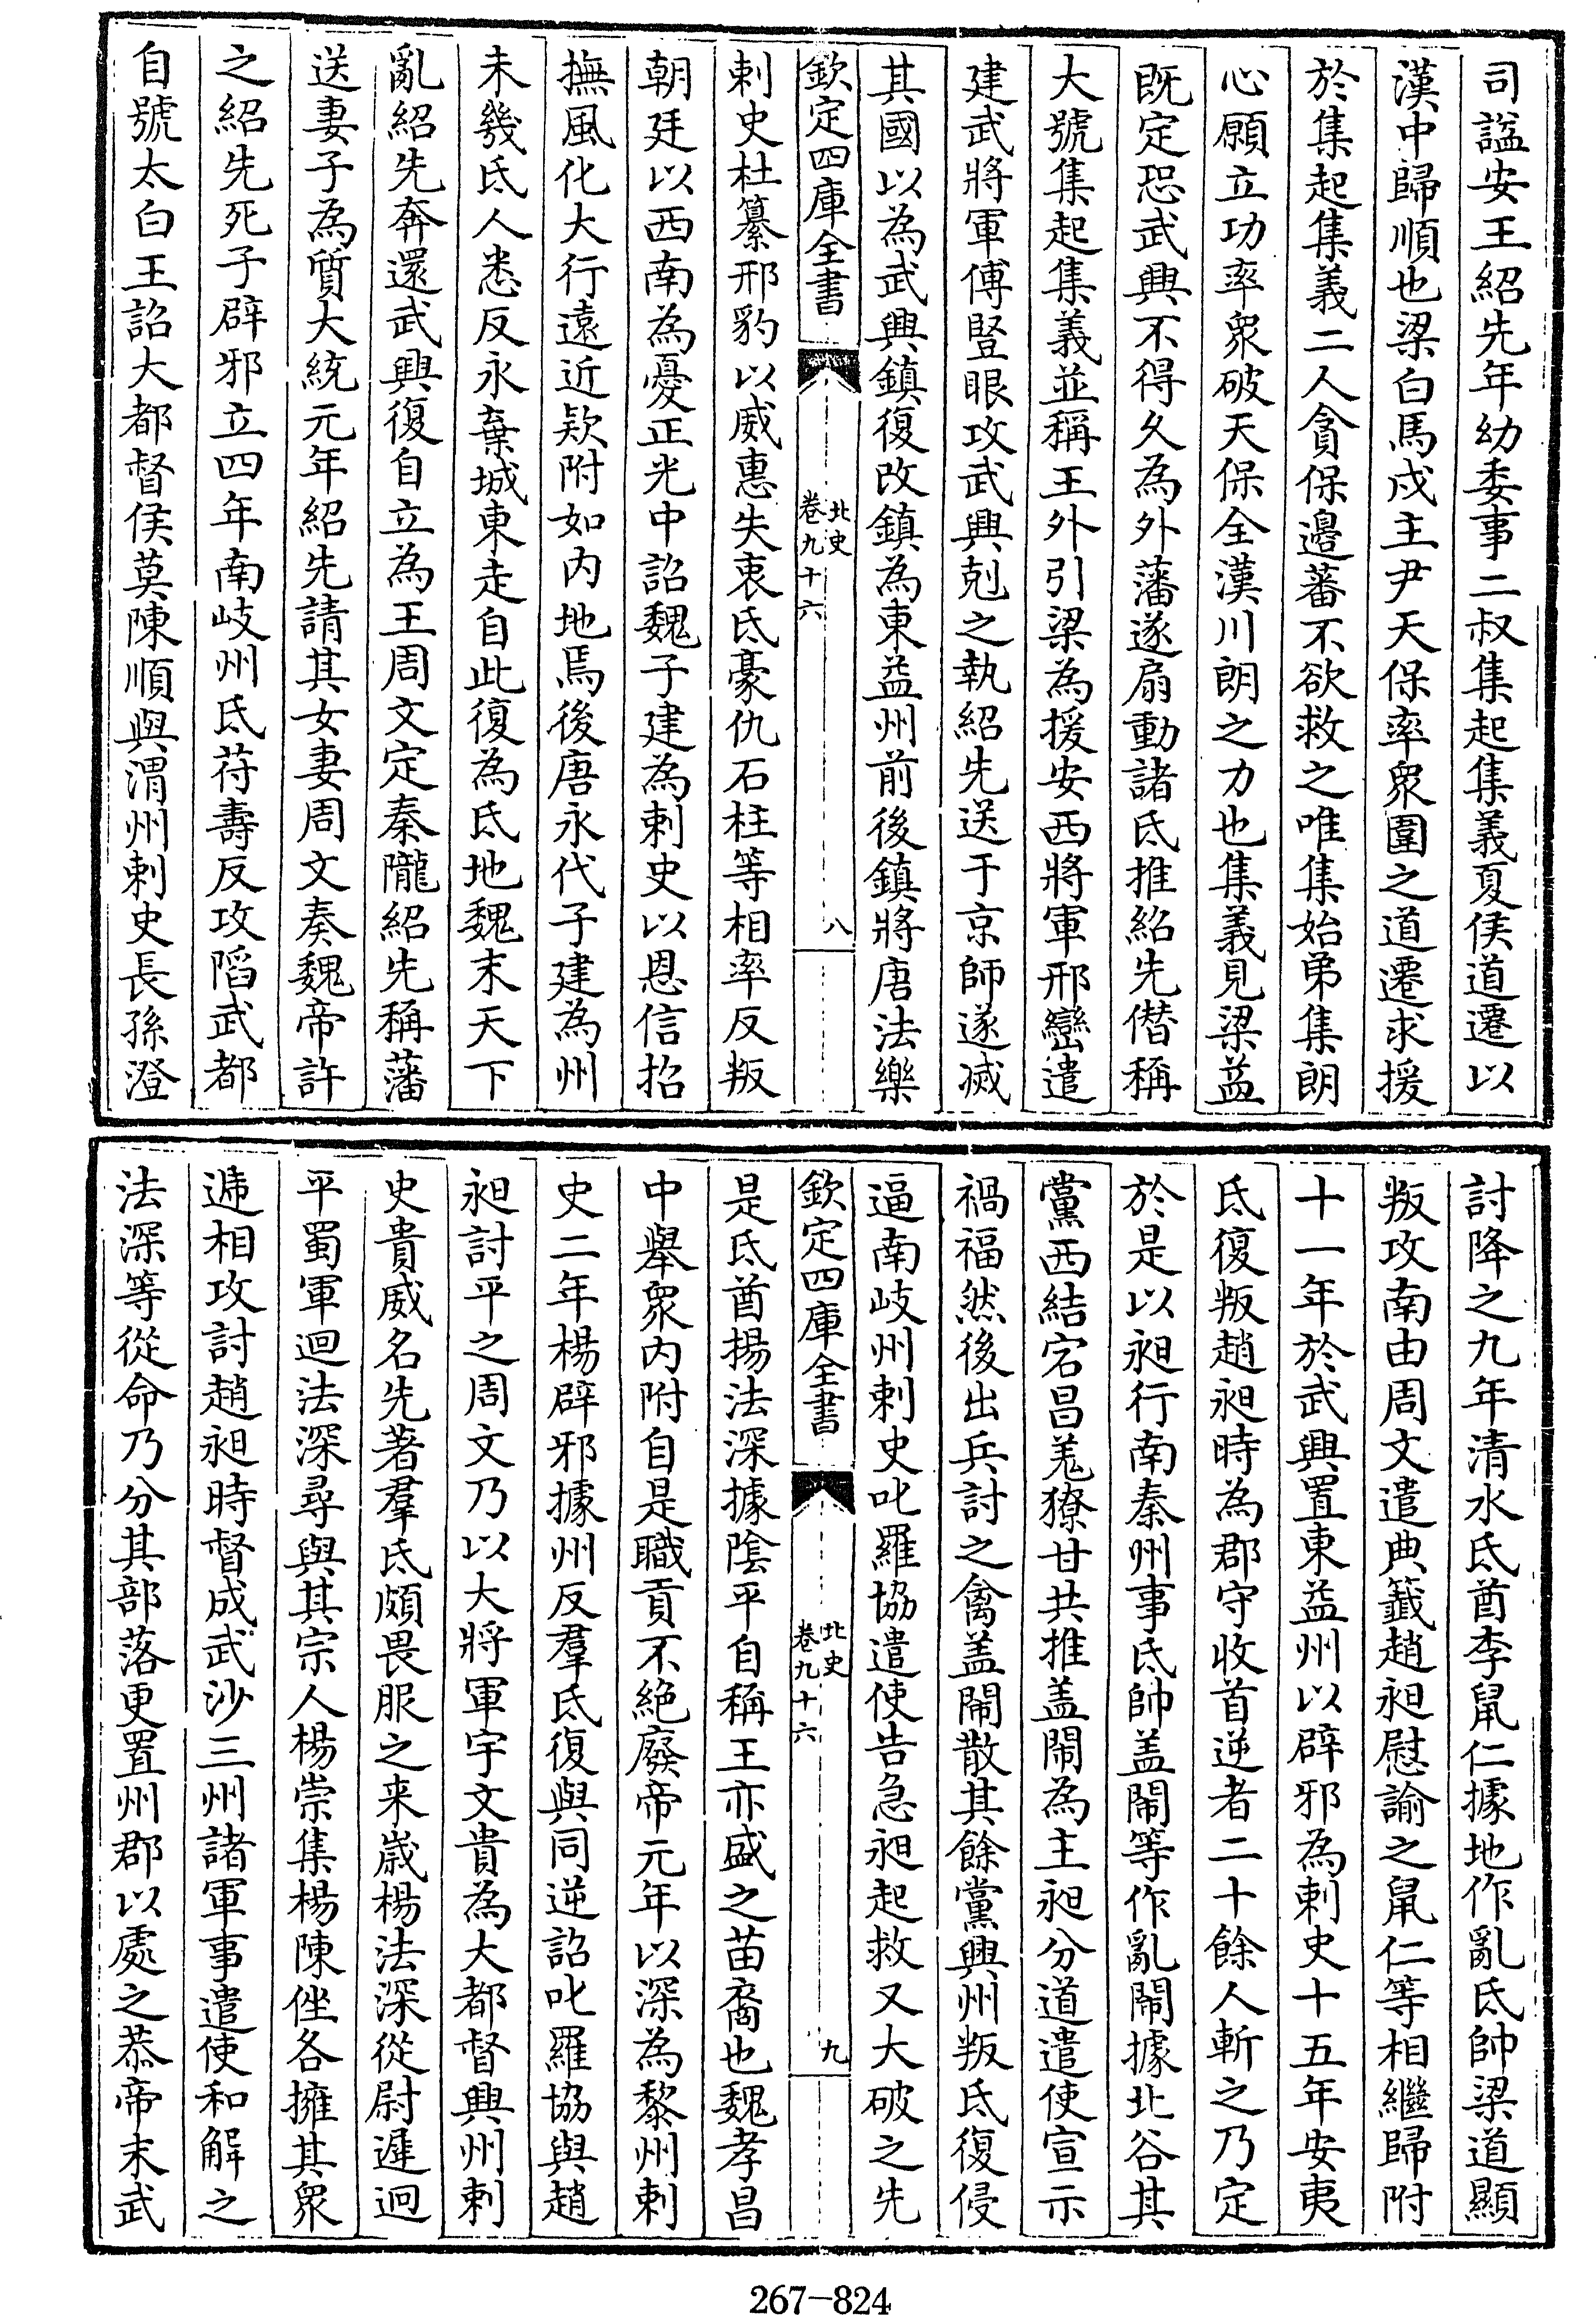 司諡安王紹先年幼委事二叔集起集義夏侯道遷以
漢中歸順也梁白馬戍主尹天保率衆圍之道遷求援
於集起集義二人貪保邊蕃不欲救之唯集始弟集朗
心願立功率衆破天保全漢川朗之力也集義見梁益
既定恐武興不得久為外藩遂扇動諸氐推紹先僭稱
大號集起集義並稱王外引梁為援安西將軍邢巒遣
建武將軍傅豎眼攻武興剋之執紹先送于京師遂滅
其國以為武興鎮復改鎮為東益州前後鎮將唐法樂
欽定四庫全書
北史
卷九十六
八
刺史杜纂邢豹以威惠失衷氐豪仇石柱等相率反叛
朝廷以西南為憂正光中詔魏子建為刺史以恩信招
撫風化大行遠近欵附如内地焉後唐永代子建為州
未幾氐人悉反永棄城東走自此復為氐地魏末天下
亂紹先奔還武興復自立為王周文定秦隴紹先稱藩
送妻子為質大統元年紹先請其女妻周文奏魏帝許
之紹先死子辟邪立四年南岐州氐苻壽反攻陷武都
自號太白王詔大都督侯莫陳順與渭州刺史長孫澄
討降之九年清水氐酋李鼠仁據地作亂氐帥梁道顯
叛攻南由周文遣典籖趙昶慰諭之鼠仁等相繼歸附
十一年於武興置東益州以辟邪為刺史十五年安夷
氐復叛趙昶時為郡守收首逆者二十餘人斬之乃定
於是以昶行南秦州事氐帥盖鬧等作亂鬧據北谷其
黨西結宕昌羌獠甘共推盖鬧為主昶分道遣使宣示
禍福然後出兵討之禽盖鬧散其餘黨興州叛氐復侵
逼南岐州刺史叱羅協遣使告急昶起救又大破之先
欽定四庫全書
北史
卷九十六
九
是氐酋揚法深據陰平自稱王亦盛之苗裔也魏孝昌
中舉衆内附自是職貢不絶廢帝元年以深為黎州刺
史二年楊辟邪據州反羣氐復與同逆詔叱羅協與趙
昶討平之周文乃以大將軍宇文貴為大都督興州刺
史貴威名先著羣氐頗畏服之来嵗楊法深從尉遲迥
平蜀軍迴法深尋與其宗人楊崇集楊陳侳各擁其衆
遞相攻討趙昶時督成武沙三州諸軍事遣使和解之
法深等從命乃分其部落更置州郡以處之恭帝末武
267-824